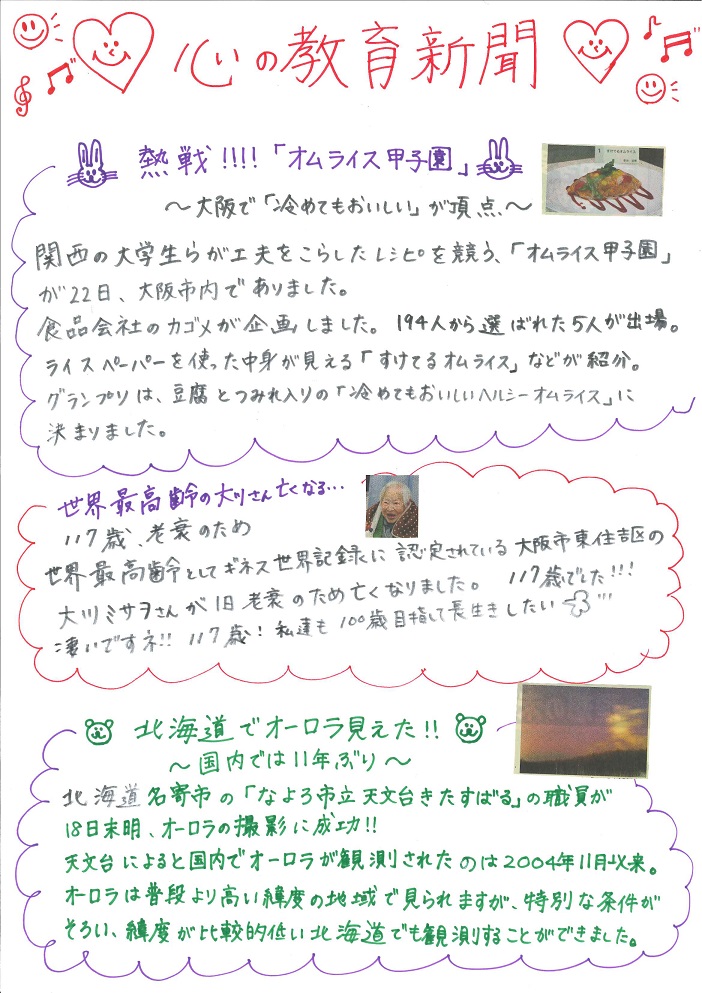 心の教育新聞
熱戦!!!!「オムライス甲子園」
～大阪で「冷めてもおいしい」が頂点～
関西の大学生らが工夫をこらしたレシピを競う、「オムライス甲子園」
が22日、大阪市内でありました。
食品会社のカゴメが企画しました。194人から選ばれた5人が出場。
ライスペーパーを使った中身が見える「すけてるオムライス」などが紹介。
グランプリは、豆腐とつみれ入りの「冷めてもおいしいヘルシーオムライス」に
決まりました。
世界最高齢の大川さん亡くなる…
117歳、老衰のため
世界最高齢としてギネス世界記録に認定されている大阪市東住吉区の
大川ミサヲさんが1日老衰のため亡くなりました。 117歳でした!!!
凄いですネ!! 117歳!私達も100歳目指して長生きしたい
北海道でオーロラ見えた!!
～国内では11年ぶり～
北海道名寄市の「なよろ市立天文台きたすばる」の職員が
18日未明、オーロラの撮影に成功!!
天文台によると国内でオーロラが観測されたのは2004年11月以来。
オーロラは普段より高い緯度の地域で見られますが、特別な条件が
そろい、緯度が比較的低い北海道でも観測することができました。